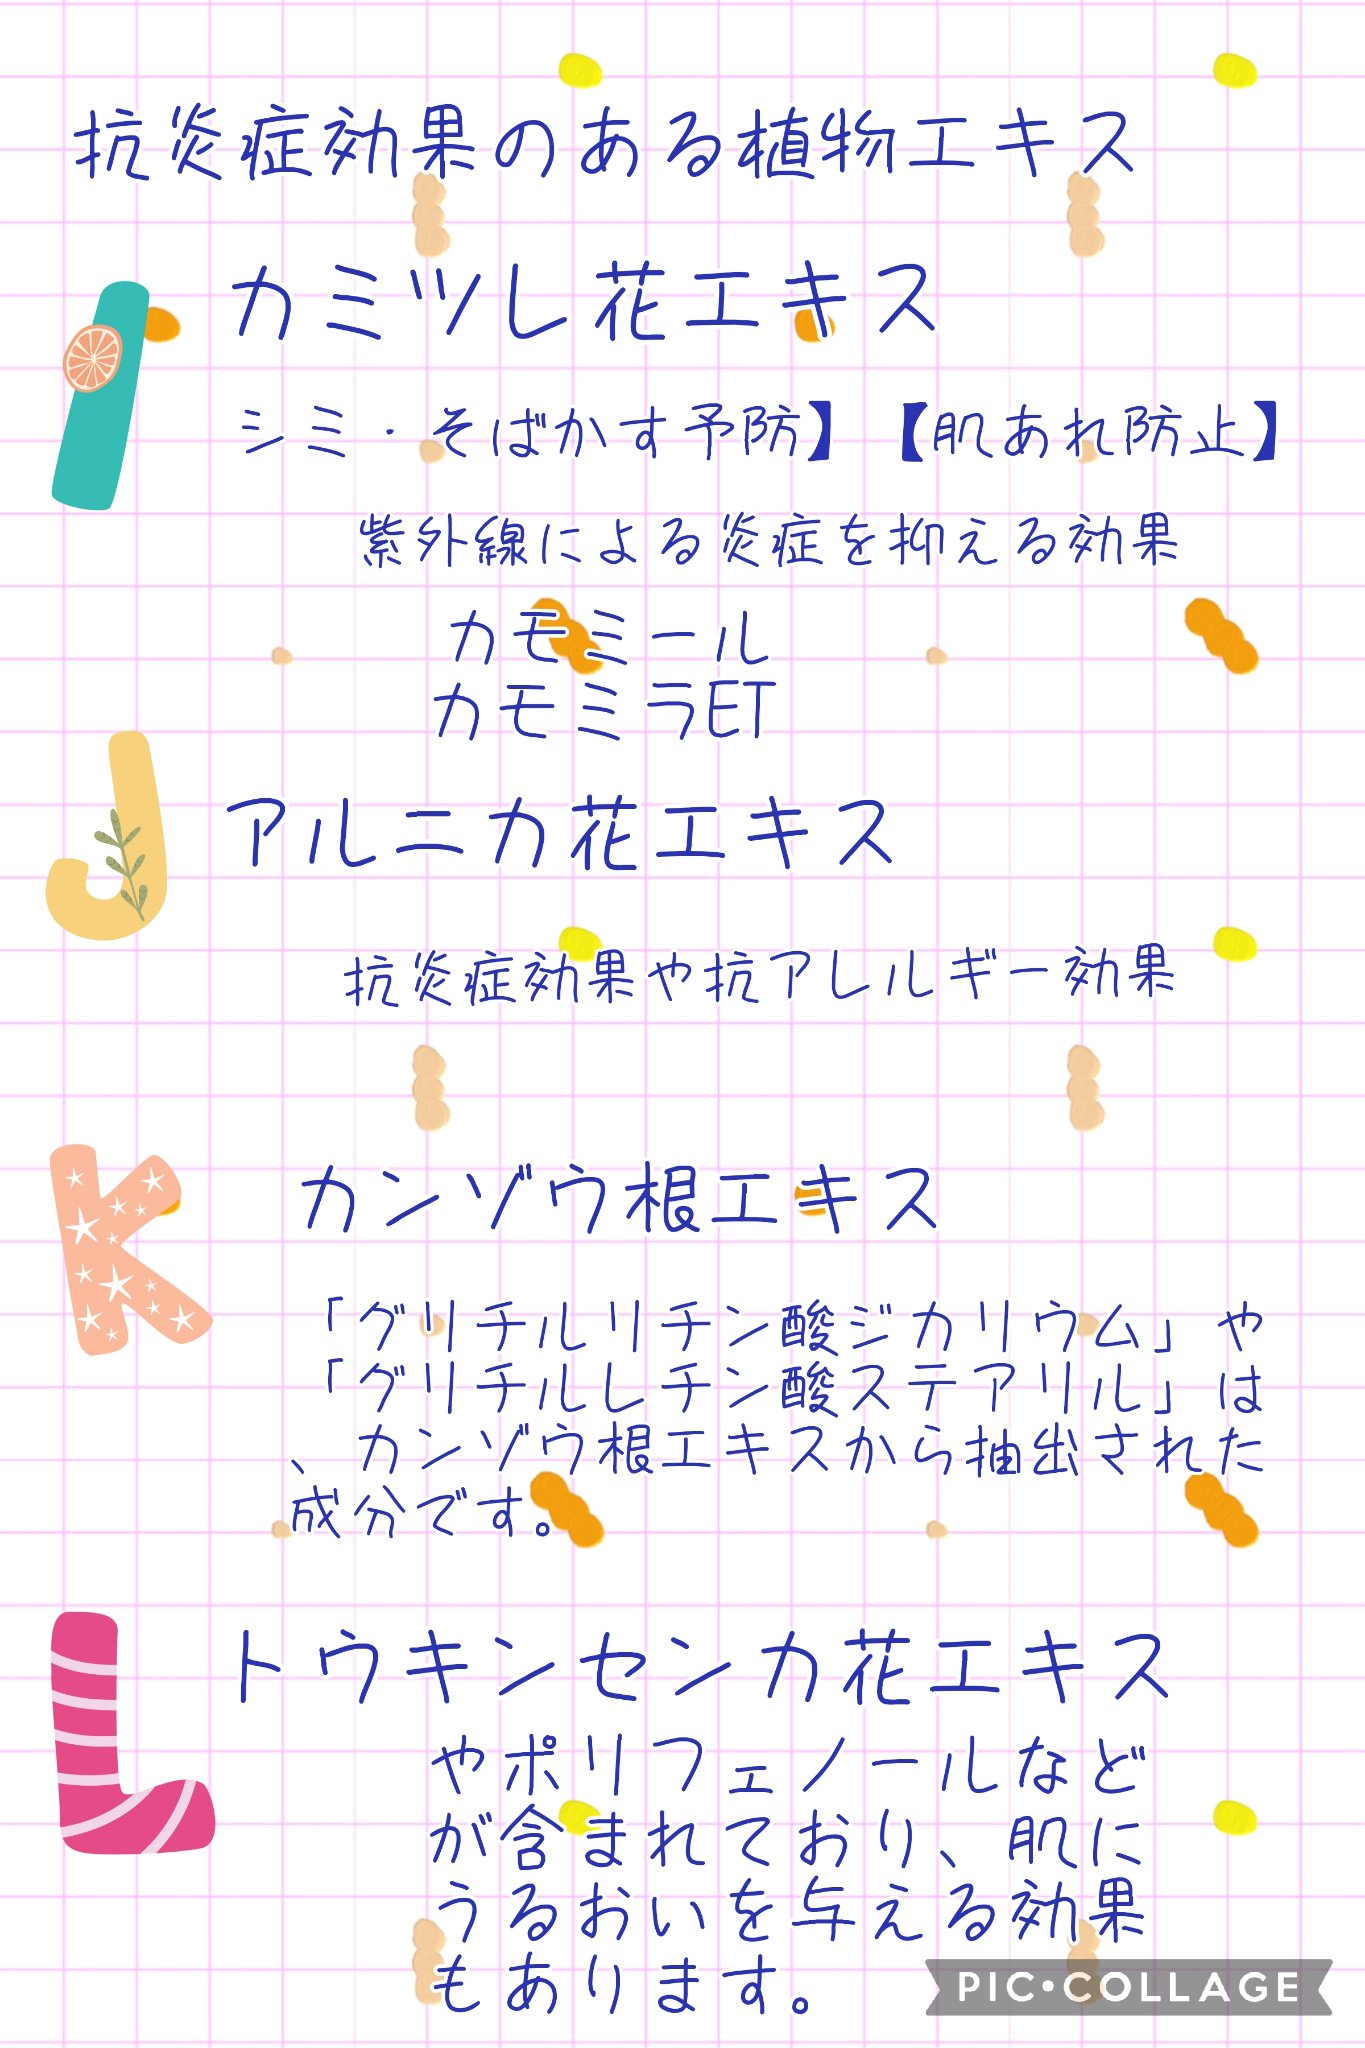 抗炎症効果のある植物エキス
I
カミツレ花エキス
シミ・そばかす予防】【肌あれ防止】
紫外線による炎症を抑える効果
カモミール
カモミラET
J
アルニカ花エキス
抗炎症効果や抗アレルギー効果
K
カンゾウ根エキス
「グリチルリチン酸ジカリウム」や
「グリチルレチン酸ステアリル」は
、カンゾウ根エキスから抽出された
成分です。
L
トウキンセンカ花エキス
やポリフェノールなど
が含まれており、肌に
うるおいを与える効果
もあります。
PIC•COLLAGE